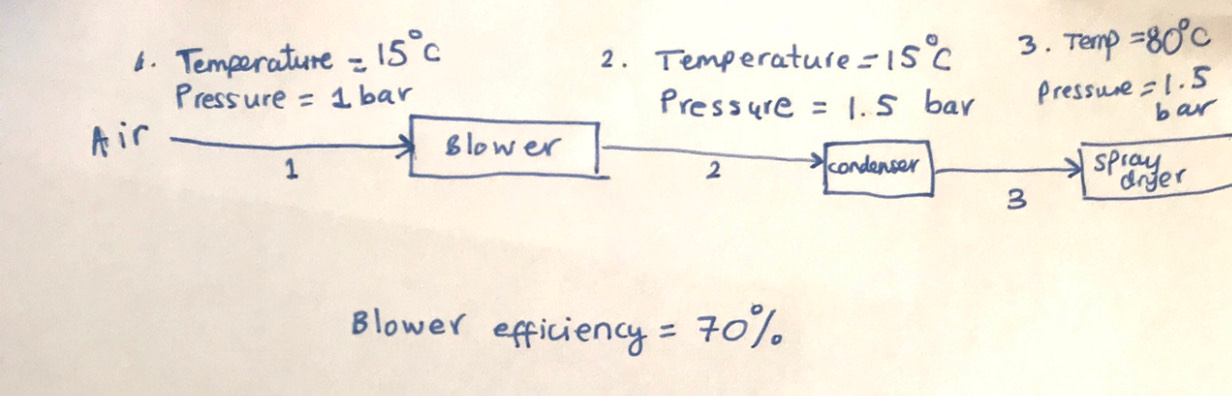 1. Temperature = 15°C
Pressure = 1 bar
2. Temperature = 15°C
Pressure = 1.5 bar
3. Temp = 80°C
Pressure = 1.5
bar
Air
1
Blower
2
condenser
3
spray
dryer
Blower efficiency = 70%